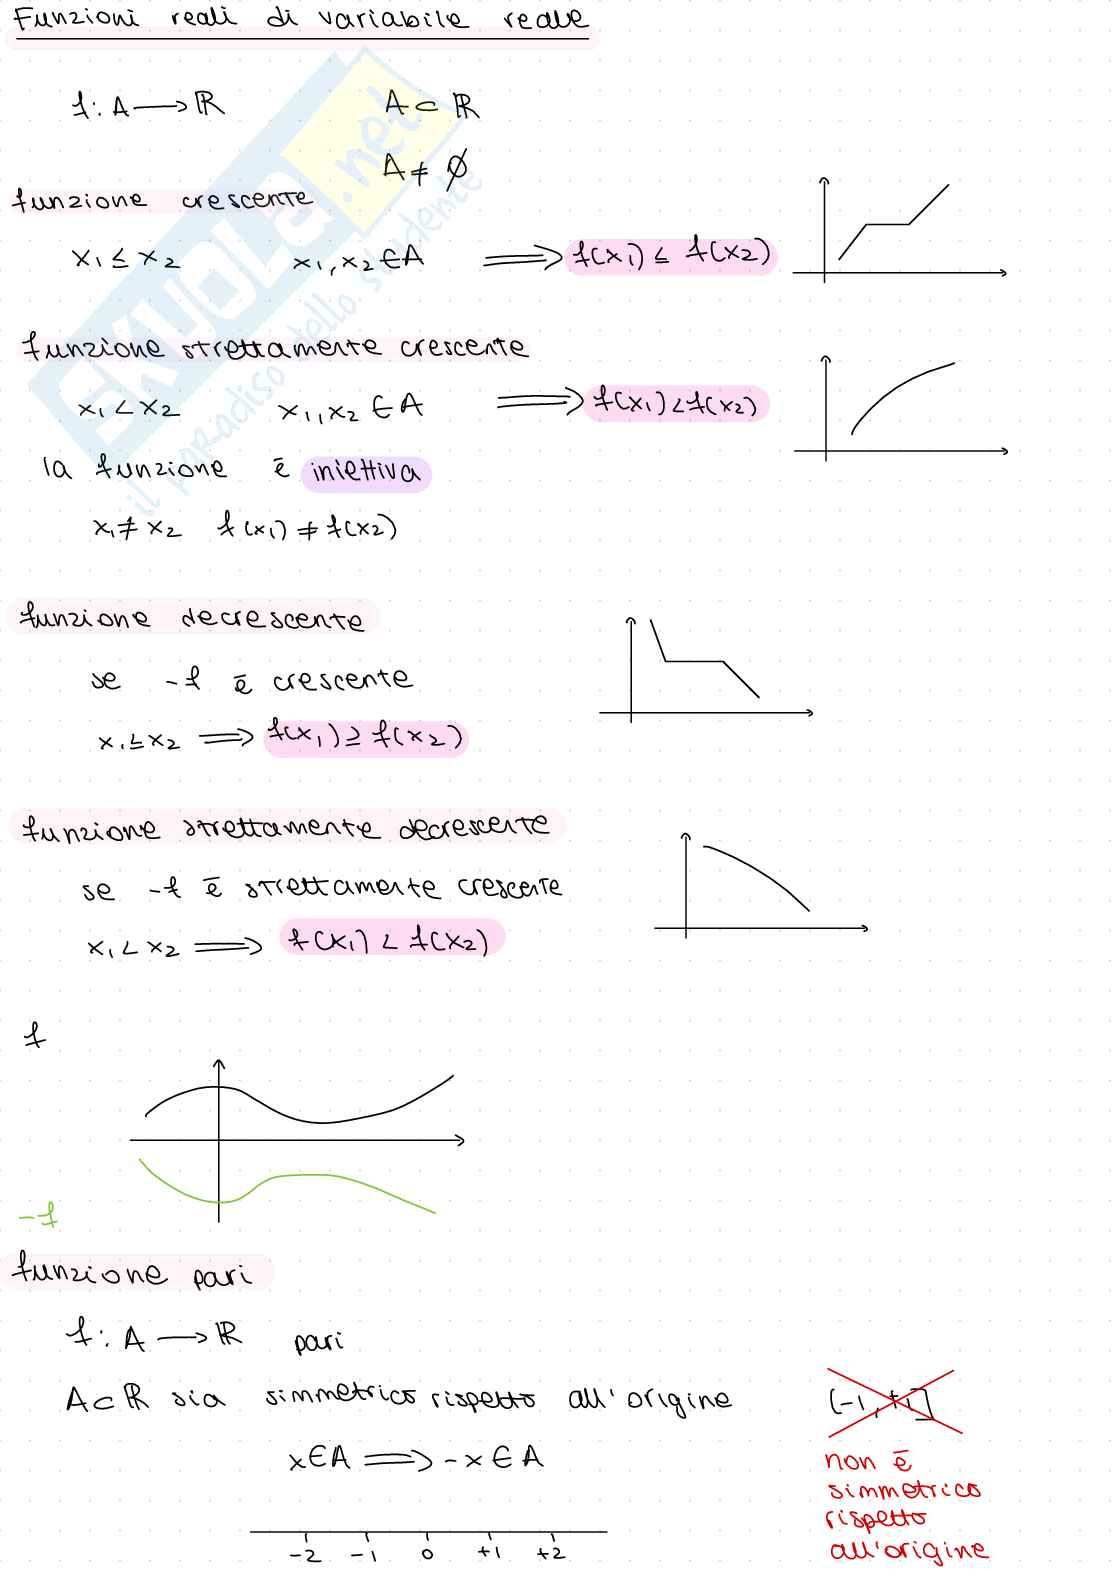 Funzioni reali di variabile reale
f: A ⟶ ℝ A ⊂ ℝ
A ≠ ∅
funzione crescente
x₁ ≤ x₂ x₁, x₂ ∈ A ⟹ f(x₁) ≤ f(x₂)
funzione strettamente crescente
x₁ < x₂ x₁, x₂ ∈ A ⟹ f(x₁) < f(x₂)
la funzione è iniettiva
x₁ ≠ x₂ f(x₁) ≠ f(x₂)
funzione decrescente
se -f è crescente
x₁ ≤ x₂ ⟹ f(x₁) ≥ f(x₂)
funzione strettamente decrescente
se -f è strettamente crescente
x₁ < x₂ ⟹ f(x₁) < f(x₂)
f
-f
funzione pari
f: A ⟶ ℝ pari
A ⊂ ℝ sia simmetrico rispetto all'origine
x ∈ A ⟹ -x ∈ A
(-1, +1]
non è
simmetrico
rispetto
all'origine
-2 -1 0 +1 +2
SKUOLA.net
il paradiso dello studente